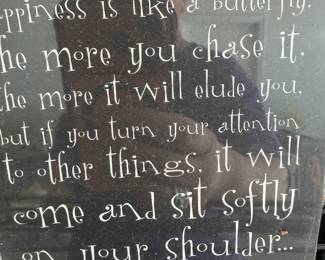 ppiness is like a butterfly.
he more you chase it.
the more it will elude you.
but if you turn your attention
to other things, it will
come and sit softly
on your shoulder...